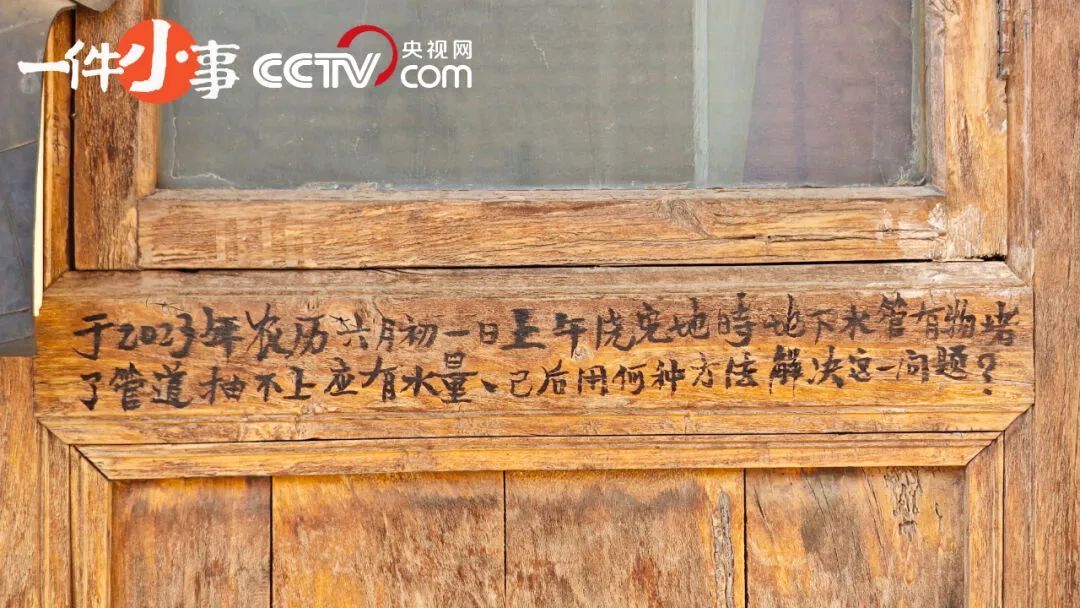 一件小事
CCTV央视网
com
于2023年农历六月初一日上午浇完地時地下水管有物堵
了管道抽不上应有水量、已后用何种方法解决这一问题?